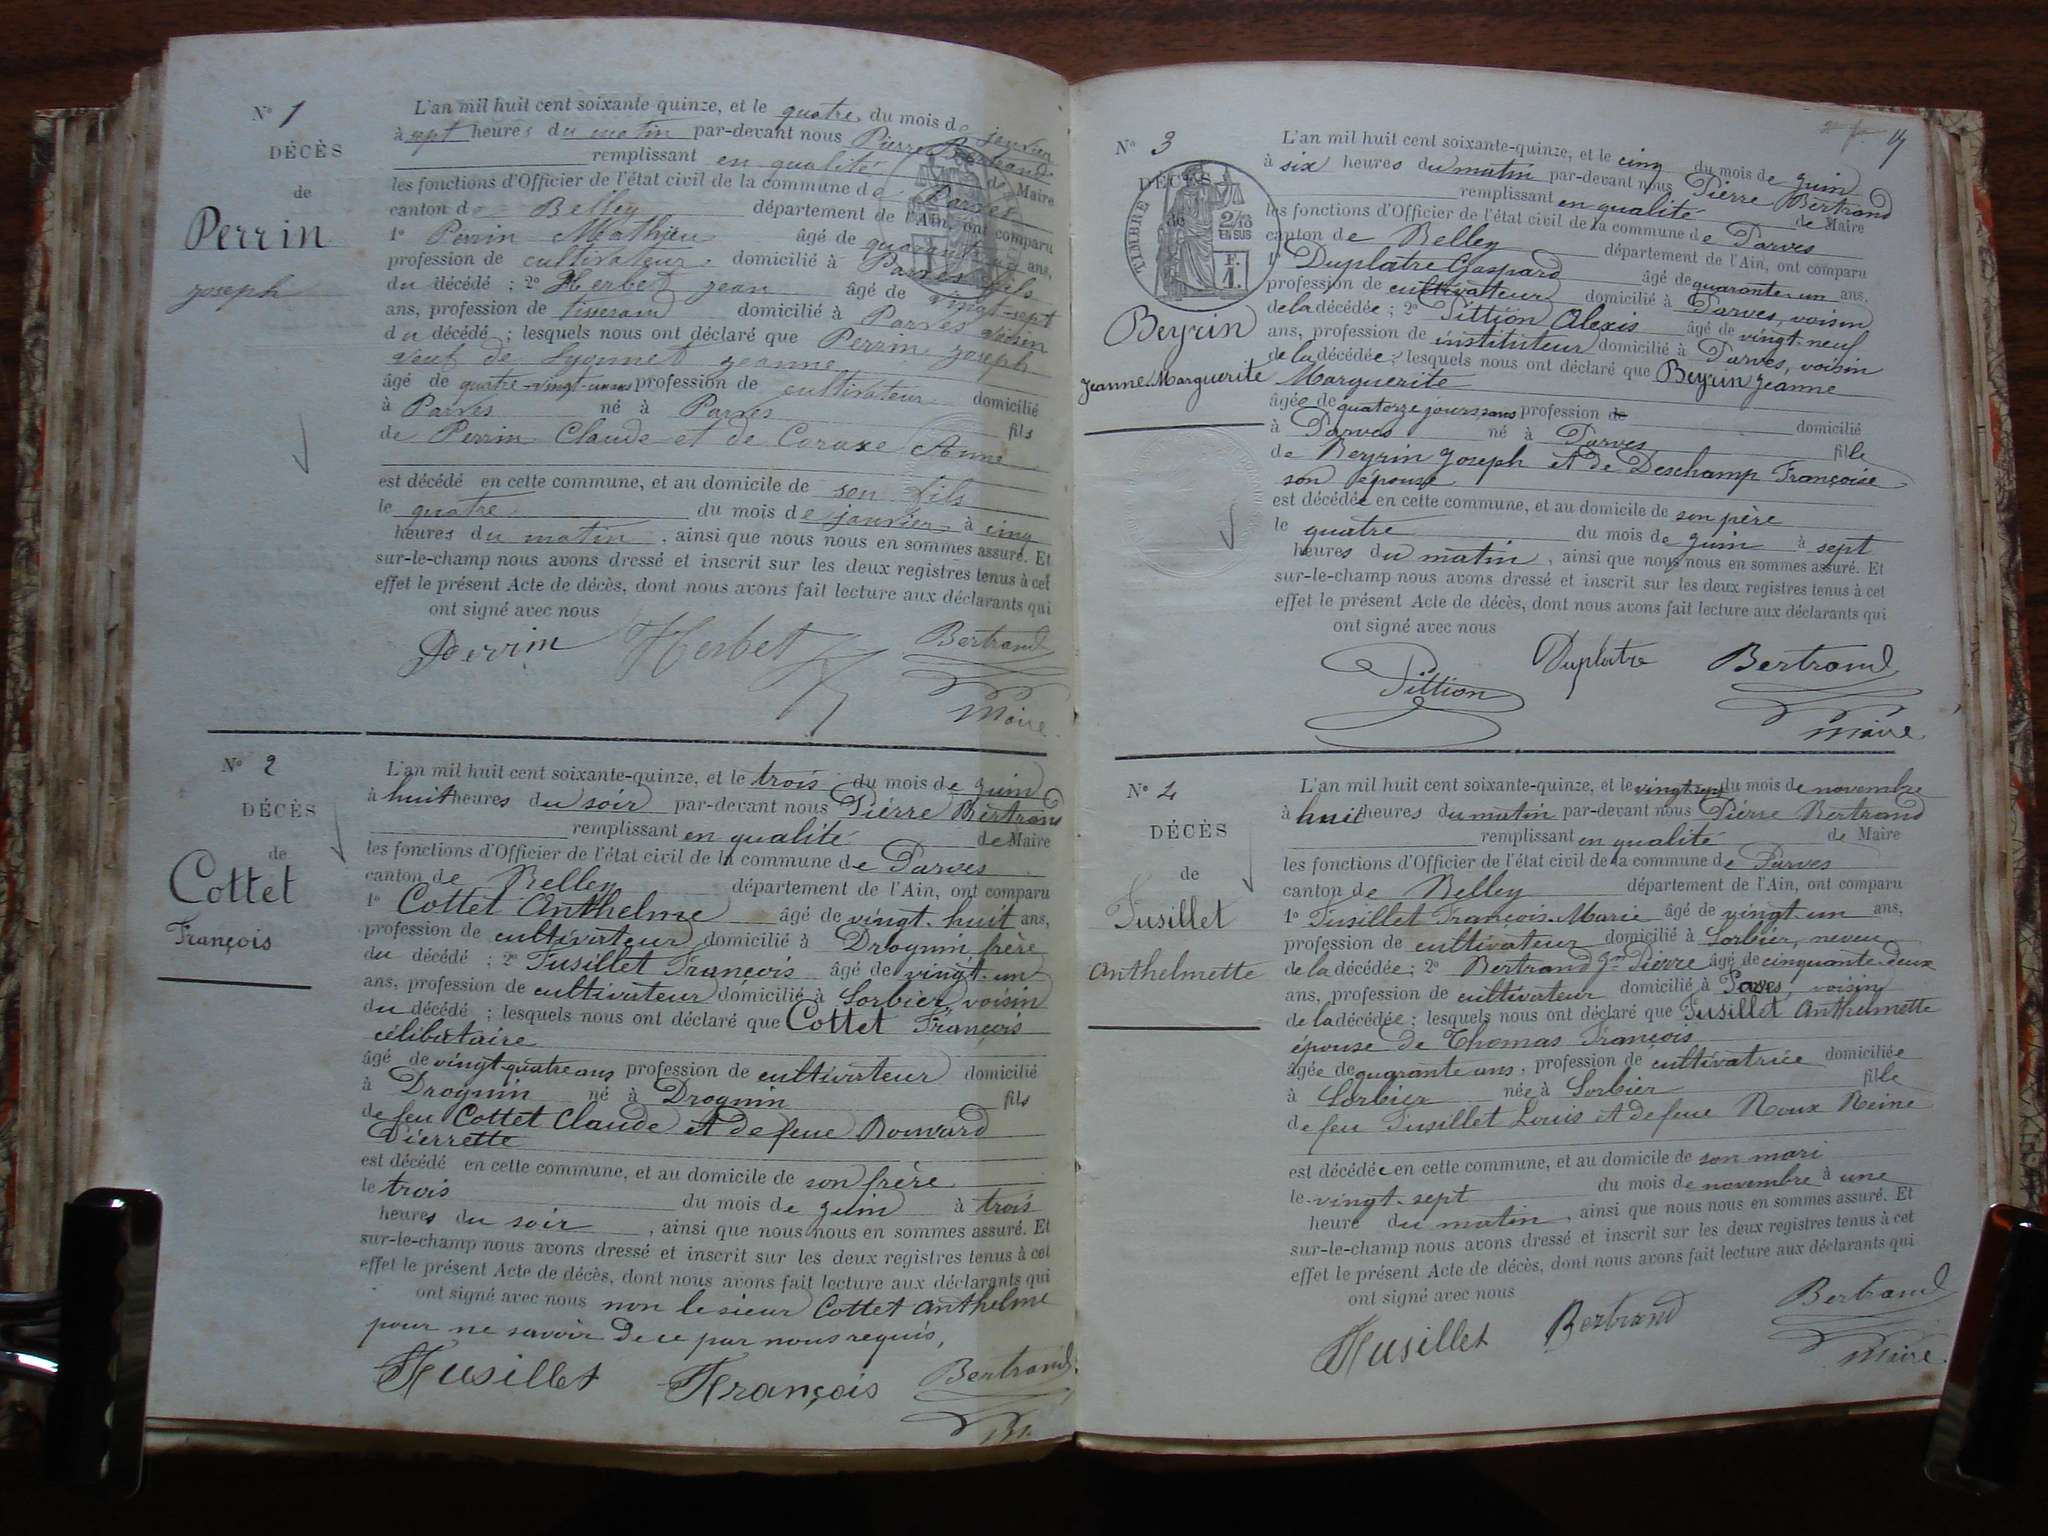 N° 1
DÉCÈS
de
Perrin
joseph
L'an mil huit cent soixante-quinze, et le quatre du mois de janvier
à sept heures du matin par-devant nous Pierre Bertrand
remplissant en qualité de Maire
les fonctions d'Officier de l'état civil de la commune de Parves
canton de Belley département de l'Ain, ont comparu
1° Perrin Mathieu âgé de ans,
profession de cultivateur domicilié à Parves fils
du décédé ; 2° Herbet jean âgé de vingt-sept
ans, profession de tisserand domicilié à Parves voisin
du décédé ; lesquels nous ont déclaré que Perrin joseph
veuf de Lyonnet jeanne
âgé de quatre-vingt-un ans profession de cultivateur domicilié
à Parves né à Parves fils
de Perrin Claude et de Coraxe Anne
est décédé en cette commune, et au domicile de son fils
le quatre du mois de janvier à cinq
heures du matin, ainsi que nous nous en sommes assuré. Et
sur-le-champ nous avons dressé et inscrit sur les deux registres tenus à cet
effet le présent Acte de décès, dont nous avons fait lecture aux déclarants qui
ont signé avec nous
Perrin Herbet Bertrand
Maire
N° 2
DÉCÈS
de
Cottet
François
L'an mil huit cent soixante-quinze, et le trois du mois de juin
à huit heures du soir par-devant nous Pierre Bertrand
remplissant en qualité de Maire
les fonctions d'Officier de l'état civil de la commune de Parves
canton de Belley département de l'Ain, ont comparu
1° Cottet Anthelme âgé de vingt-huit ans,
profession de cultivateur domicilié à Drognin, frère
du décédé ; 2° Fusillet François âgé de vingt-un
ans, profession de cultivateur domicilié à Sorbier, voisin
du décédé ; lesquels nous ont déclaré que Cottet François
célibataire
âgé de vingt-quatre ans profession de cultivateur domicilié
à Drognin né à Drognin fils
de feu Cottet Claude et de feue Bouvard
Pierrette
est décédé en cette commune, et au domicile de son frère
le trois du mois de juin à trois
heures du soir, ainsi que nous nous en sommes assuré. Et
sur-le-champ nous avons dressé et inscrit sur les deux registres tenus à cet
effet le présent Acte de décès, dont nous avons fait lecture aux déclarants qui
ont signé avec nous non le sieur Cottet Anthelme
pour ne savoir de ce par nous requis,
Fusillet François Bertrand
N° 3
DÉCÈS
de
TIMBRE
2/10
EN SUS
F.
1.
Beyrin
Jeanne Marguerite
L'an mil huit cent soixante-quinze, et le cinq du mois de juin
à six heures du matin par-devant nous Pierre Bertrand
remplissant en qualité de Maire
les fonctions d'Officier de l'état civil de la commune de Parves
canton de Belley département de l'Ain, ont comparu
1° Duplatre Gaspard âgé de quarante-un ans,
profession de cultivateur domicilié à Parves, voisin
de la décédée ; 2° Pittion Alexis âgé de vingt-neuf
ans, profession de instituteur domicilié à Parves, voisin
de la décédée ; lesquels nous ont déclaré que Beyrin jeanne
Marguerite
âgée de quatorze jours, sans profession de domicilié
à Parves né à Parves fille
de Beyrin joseph et de Deschamp Françoise
son épouse
est décédée en cette commune, et au domicile de son père
le quatre du mois de juin à sept
heures du matin, ainsi que nous nous en sommes assuré. Et
sur-le-champ nous avons dressé et inscrit sur les deux registres tenus à cet
effet le présent Acte de décès, dont nous avons fait lecture aux déclarants qui
ont signé avec nous
Pittion Duplatre Bertrand
Maire
N° 4
DÉCÈS
de
Fusillet
Anthelmette
L'an mil huit cent soixante-quinze, et le vingt-sept du mois de novembre
à huit heures du matin par-devant nous Pierre Bertrand
remplissant en qualité de Maire
les fonctions d'Officier de l'état civil de la commune de Parves
canton de Belley département de l'Ain, ont comparu
1° Fusillet François-Marie âgé de vingt-un ans,
profession de cultivateur domicilié à Sorbier, neveu
de la décédée ; 2° Bertrand Pierre âgé de cinquante-deux
ans, profession de cultivateur domicilié à Parves, voisin
de la décédée ; lesquels nous ont déclaré que Fusillet Anthelmette
épouse de Thomas François
âgée de quarante ans, profession de cultivatrice domiciliée
à Sorbier née à Sorbier fille
de feu Fusillet Louis et de feue Roux Reine
est décédée en cette commune, et au domicile de son mari
le vingt-sept du mois de novembre à une
heure du matin, ainsi que nous nous en sommes assuré. Et
sur-le-champ nous avons dressé et inscrit sur les deux registres tenus à cet
effet le présent Acte de décès, dont nous avons fait lecture aux déclarants qui
ont signé avec nous
Fusillet Bertrand Bertrand
Maire